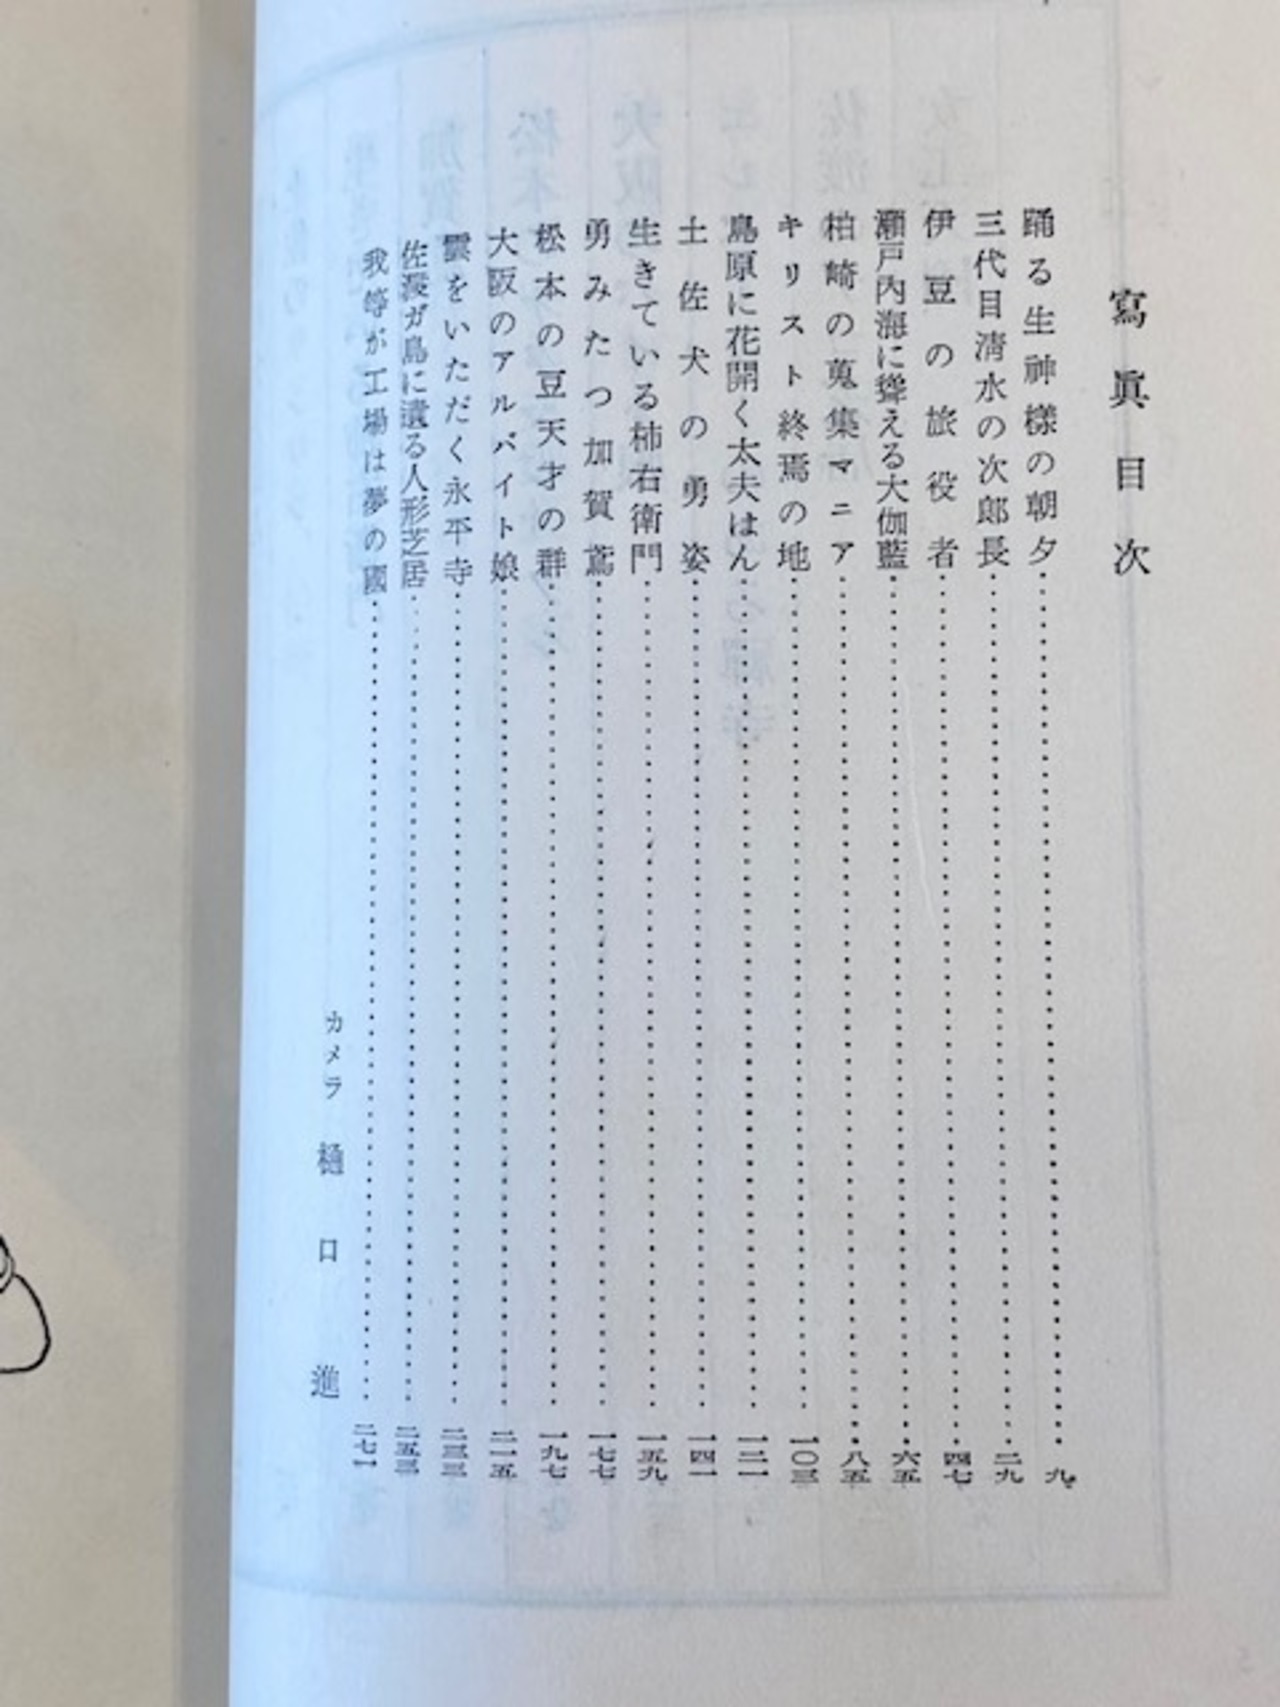 寫眞目次
踊る生神樣の朝夕……九
三代目淸水の次郞長……二九
伊豆の旅役者……四七
瀨戸內海に聳える大伽藍……六五
柏崎の蒐集マニア……八五
キリスト終焉の地……一〇三
島原に花開く太夫はん……一二一
土佐犬の勇姿……一四一
生きている柿右衞門……一五九
勇みたつ加賀鳶……一七七
松本の豆天才の群……一九七
大阪のアルバイト娘……二一五
雲をいただく永平寺……二三三
佐渡ガ島に遺る人形芝居……二五三
我等が工場は夢の國……二七一
カメラ 樋口進